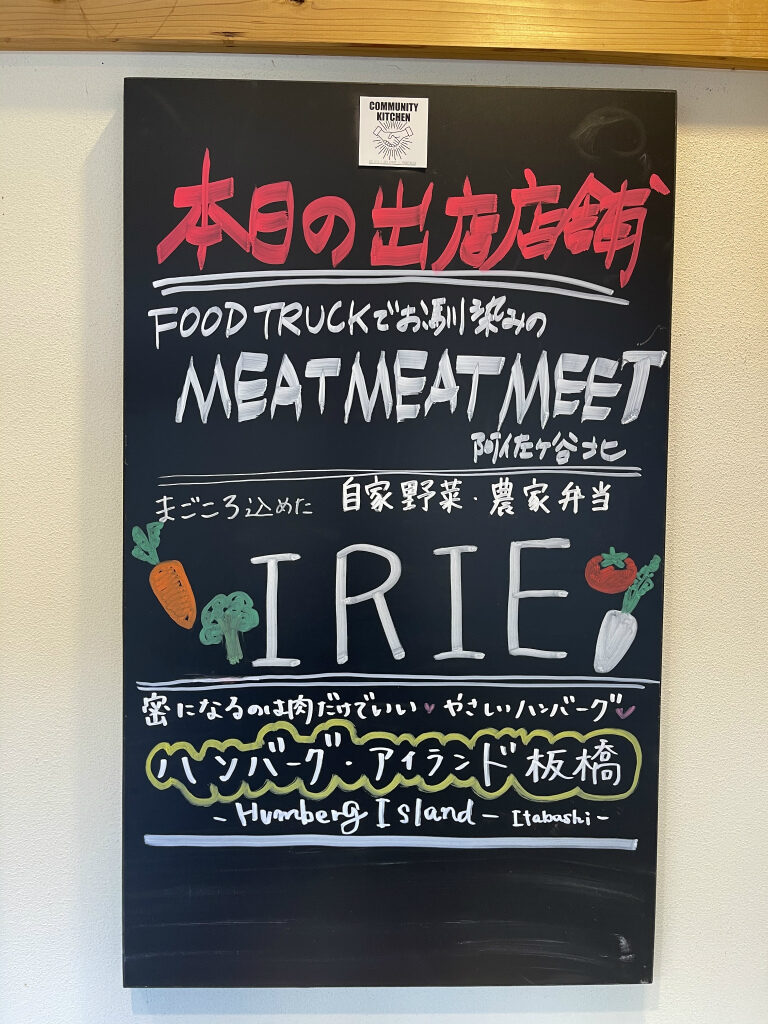 COMMUNITY
KITCHEN
本日の出店店舗
FOOD TRUCKでお馴染みの
MEATMEATMEET
阿佐ヶ谷北
まごころ込めた 自家野菜・農家弁当
IRIE
密になるのは肉だけでいい♥やさしいハンバーグ♥
ハンバーグ・アイランド 板橋
- Humberg Island - Itabashi -